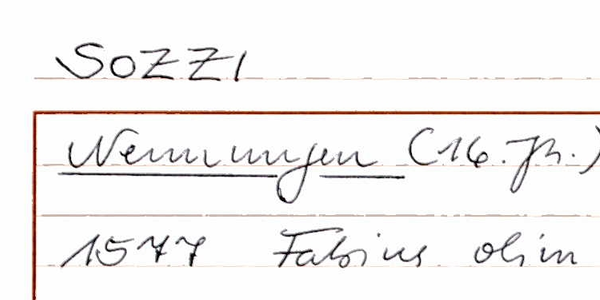 SOZZI
Nennungen (16. Jh.)
1577 Fabius olim